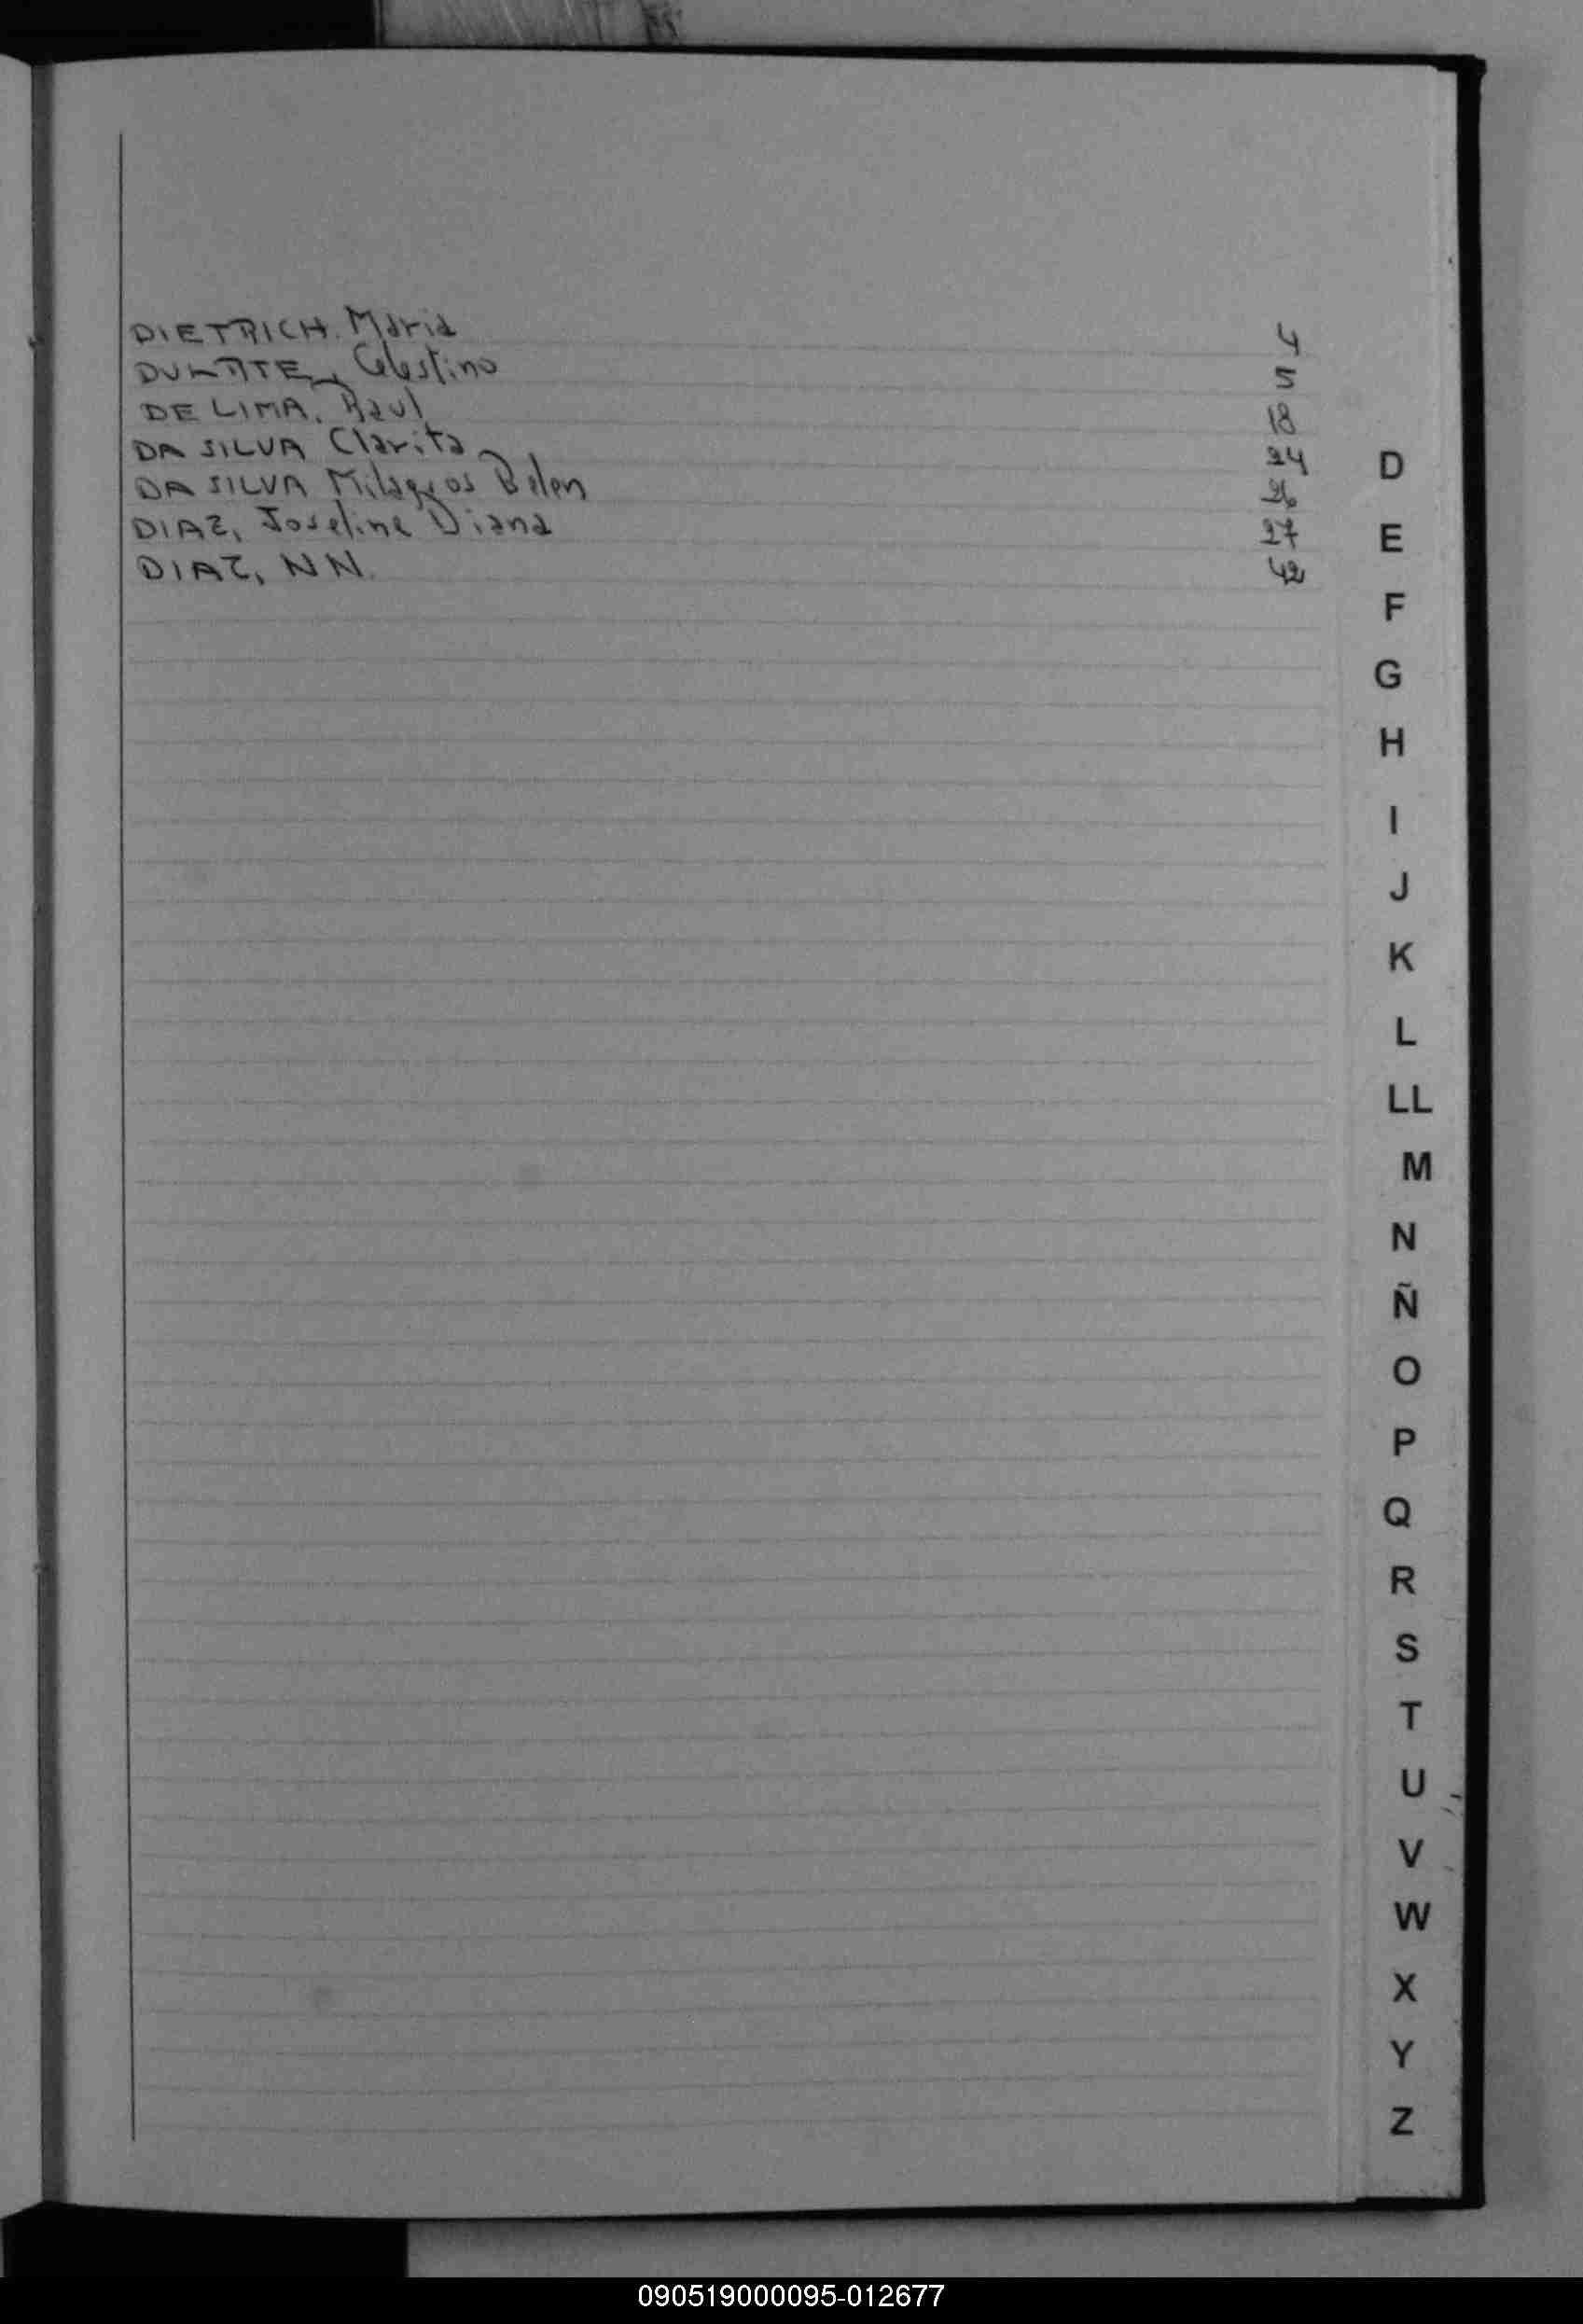 DIETRICH. Maria 4
Celestino 5
DE LIMA, Raul 18
DA SILVA Clarita 24
DA SILVA Milagros Belen 26
DIAZ, Joseline Diana 27
DIAZ, NN. 42
D
E
F
G
H
I
J
K
L
LL
M
N
Ñ
O
P
Q
R
S
T
U
V
W
X
Y
Z
090519000095-012677